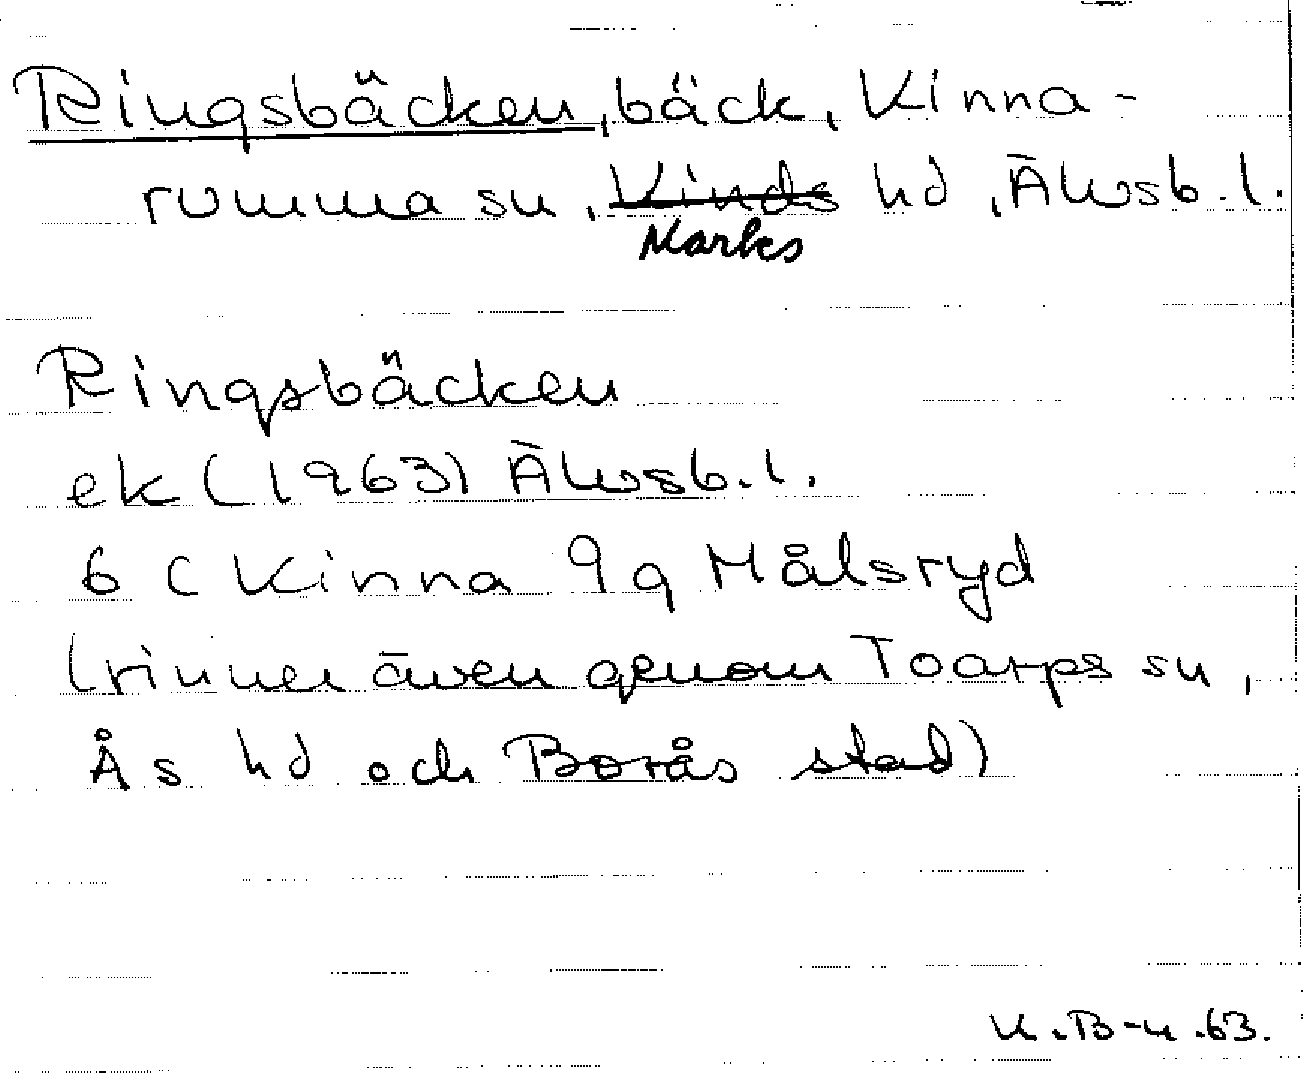 Ringsbäcken, bäck, Kinna-
rumma sn, Kinds hd, Älvsb. l.
Marks
Ringsbäcken
ek (1963) Älvsb. l.
6 C Kinna 9g Målsryd
(rinner även genom Toarps sn,
Ås hd och Borås stad)
K.B-n .63.